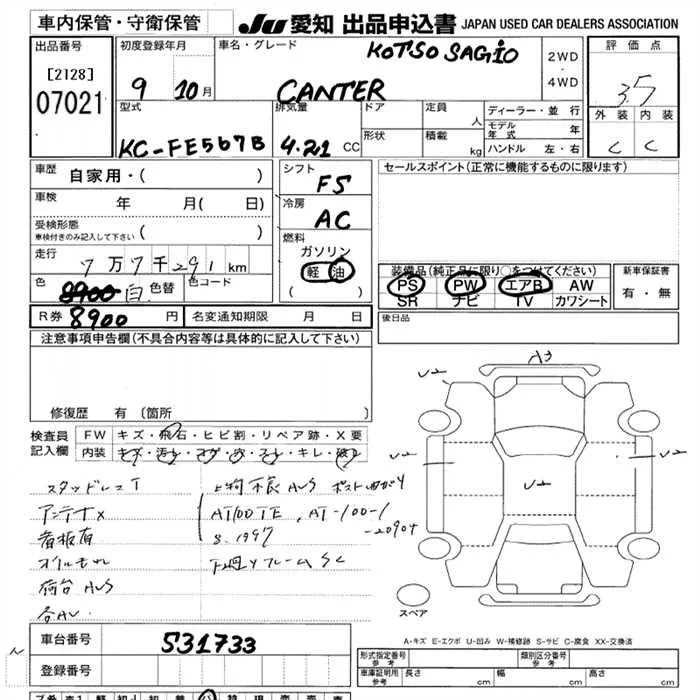 車内保管・守衛保管 JU 愛知 出品申込書 JAPAN USED CAR DEALERS ASSOCIATION
出品番号
[2128]
07021
初度登録年月
9 10月
車名・グレード
KOTSO SAGIO
CANTER
2WD
・
4WD
評価点
3.5
外装 内装
C C
型式
KC-FE567B
排気量
4.21 CC
ドア
形状
定員
人
積載
kg
ディーラー・並行
モデル年式 年
ハンドル 左・右
車歴
自家用・( )
車検
年 月( 日)
受検形態
車検付きのみ記入して下さい ( )
走行
7万7千291km
色
8900 白
色替
色コード
R券 8900 円
名変通知期限 月 日
シフト
F5
冷房
AC
燃料
ガソリン
軽油
( )
セールスポイント(正常に機能するものに限ります)
装備品(純正品に限り○をつけてください)
PS PW エアB AW
SR ナビ TV カワシート
新車保証書
有・無
後日品
注意事項申告欄(不具合内容等は具体的に記入して下さい)
修復歴 有(箇所
検査員
記入欄
FW キズ・飛石・ヒビ割・リペア跡・X要
内装 キズ・汚れ・コゲ・穴・スレ・キレ・破れ
スタッドレスT
アンテナX
看板有
オイルもれ
荷台AUS
各AU
上物不良AUS
AT100TE, AT-100-1
S-1997
-20904
下廻りフレームSC
A3
U2
U2
U2
U2
スペア
A-キズ E-エクボ U-凹み W-補修跡 S-サビ C-腐食 XX-交換済
車台番号 531733
登録番号
型式指定番号
参考
類別区分番号
参考
車庫証明用
参考
長さ cm
幅 cm
高さ cm